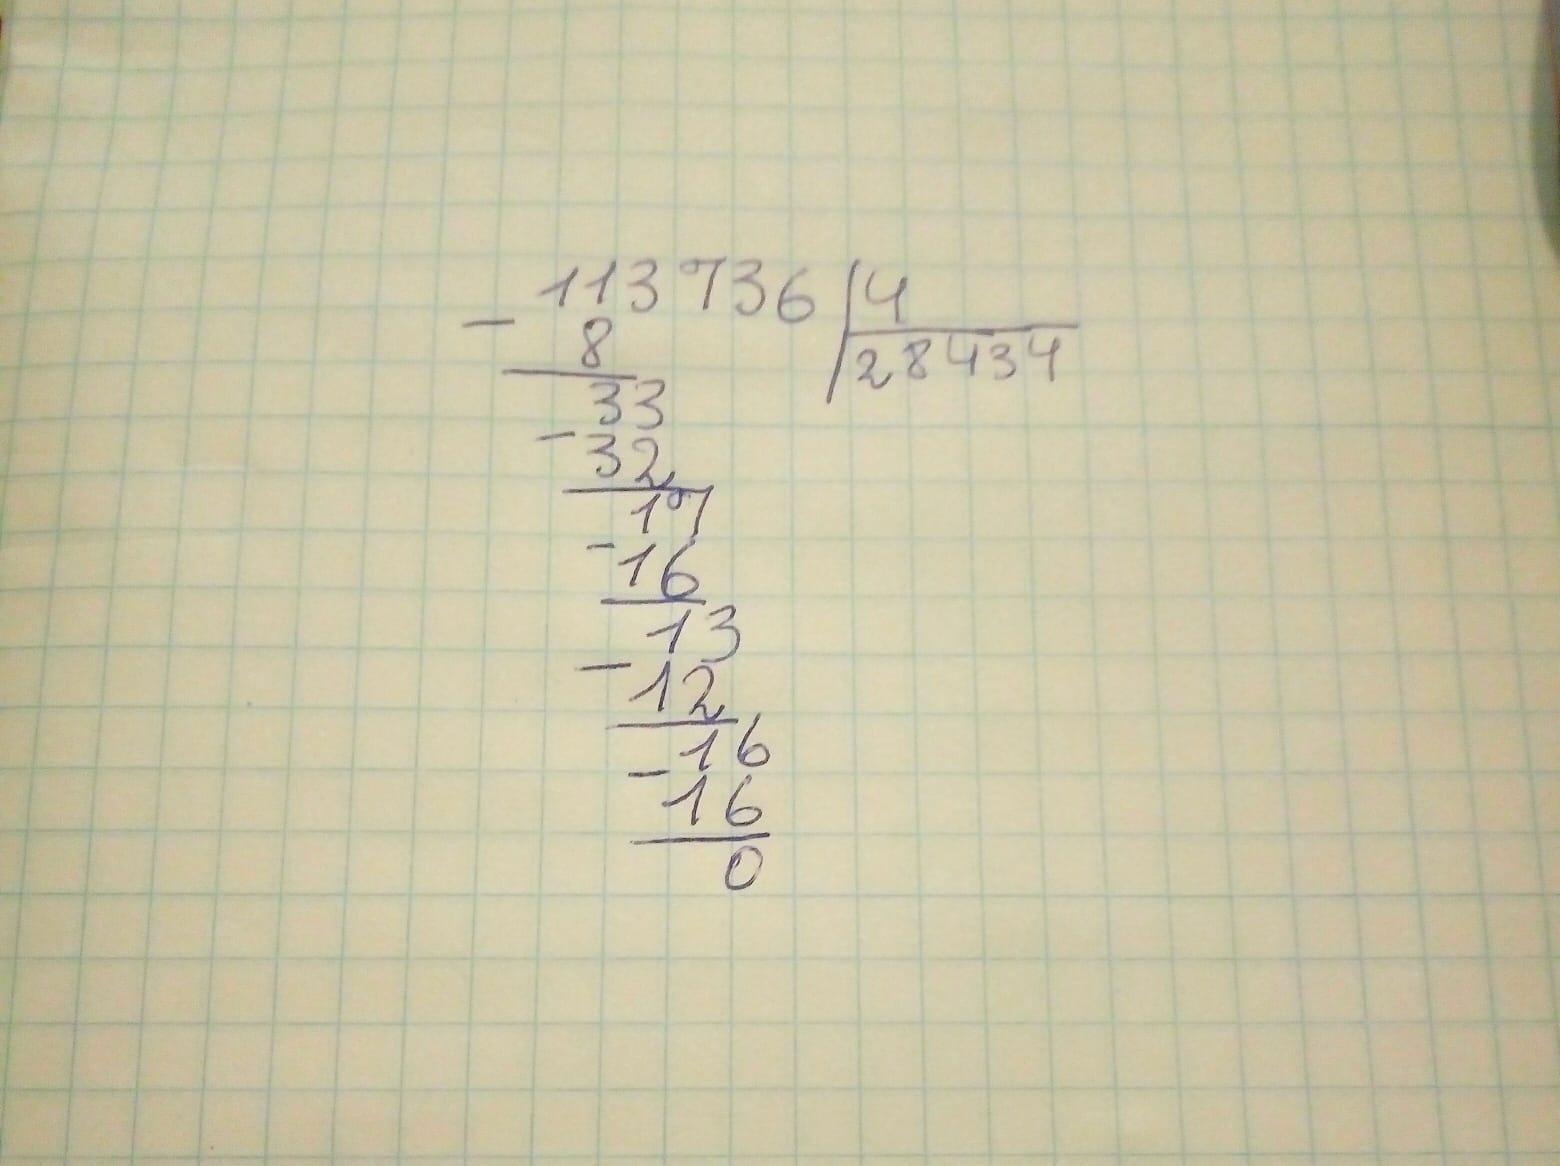 113736 4
- 8 28434
33
- 32
17
- 16
13
- 12
16
- 16
0